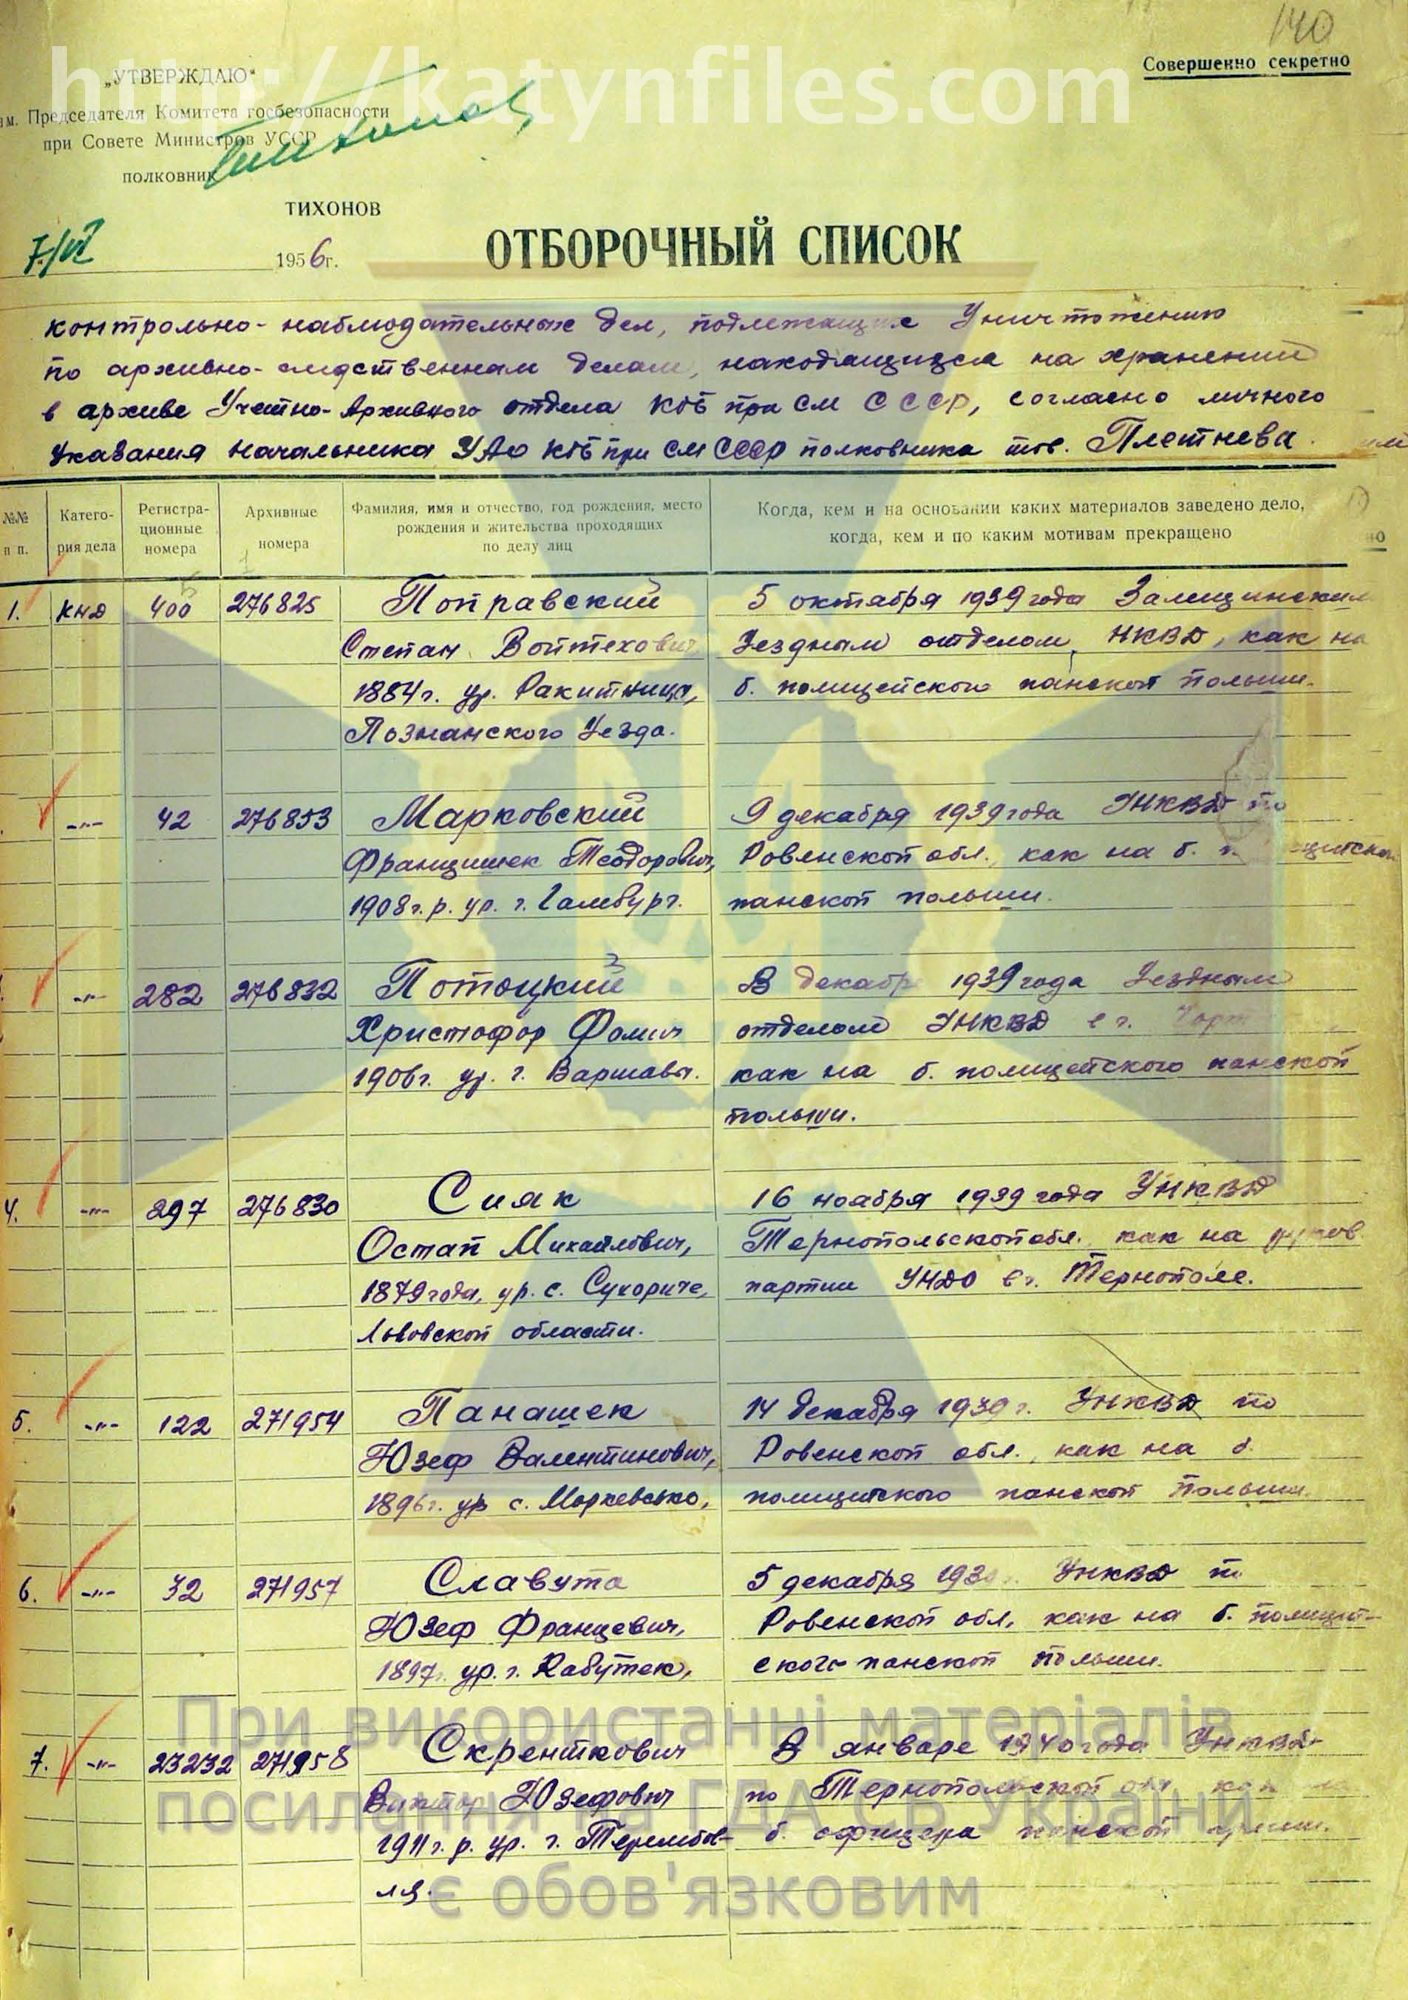 140
http://katynfiles.com
Совершенно секретно
„УТВЕРЖДАЮ“
ам. Председателя Комитета госбезопасности
при Совете Министров УССР
полковник
ТИХОНОВ
1956г.
ОТБОРОЧНЫЙ СПИСОК
контрольно-наблюдательных дел, подлежащих уничтожению
по архивно-следственным делам, находящихся на хранении
в архиве Учетно-Архивного отдела КГБ при СМ СССР, согласно личного
Указания начальника УАО КГБ при СМ СССР полковника тов. Плетнева.
№№ п п.
Катего- рия дела
Регистра- ционные номера
Архивные номера
Фамилия, имя и отчество, год рождения, место
рождения и жительства проходящих
по делу лиц
Когда, кем и на основании каких материалов заведено дело,
когда, кем и по каким мотивам прекращено
1. КНД 400 276825 Поправский 5 октября 1939 года Залещинским
Степан Войтехович Уездным отделом НКВД, как на
1884г. ур. Ракитница, б. полицейского панской Польши.
Познанского Уезда.
-"- 42 276853 Марковский 9 декабря 1939 года УНКВД по
Францишек Теодорович, Ровенской обл., как на б.
1908г.р. ур. г. Гамбург. панской польши.
-"- 282 276832 Потоцкий В декабре 1939 года Уездным
Христофор Фомич отделом УНКВД в г.
1906г. ур. г. Варшавы. как на б. полицейского панской
польши.
4. -"- 297 276830 Сияк 16 ноября 1939 года УНКВД
Остап Михайлович, Тернопольской обл. как на руков.
1879 года, ур. с. Сукориче, партии УНДО в г. Тернополе.
Львовской области.
5. -"- 122 271954 Панашек 14 декабря 1939 г. УНКВД по
Юзеф Валентинович, Ровенской обл., как на б.
1896г. ур с. полицейского панской Польши
6. -"- 32 271957 Славута 5 декабря УНКВД по
Юзеф Францевич, Ровенской обл, как на б. полицей-
1897г. ур. г. ского панской Польши.
7. -"- 23232 271958 Скренткович В январе 1940 года УНКВД
Виктор Юзефович по Тернопольской обл как на
1911г.р. ур. г. Терембов- б. офицера панской армии.
ля.
При використанні матеріалів
посилання на ГДА СБ України
є обов'язковим